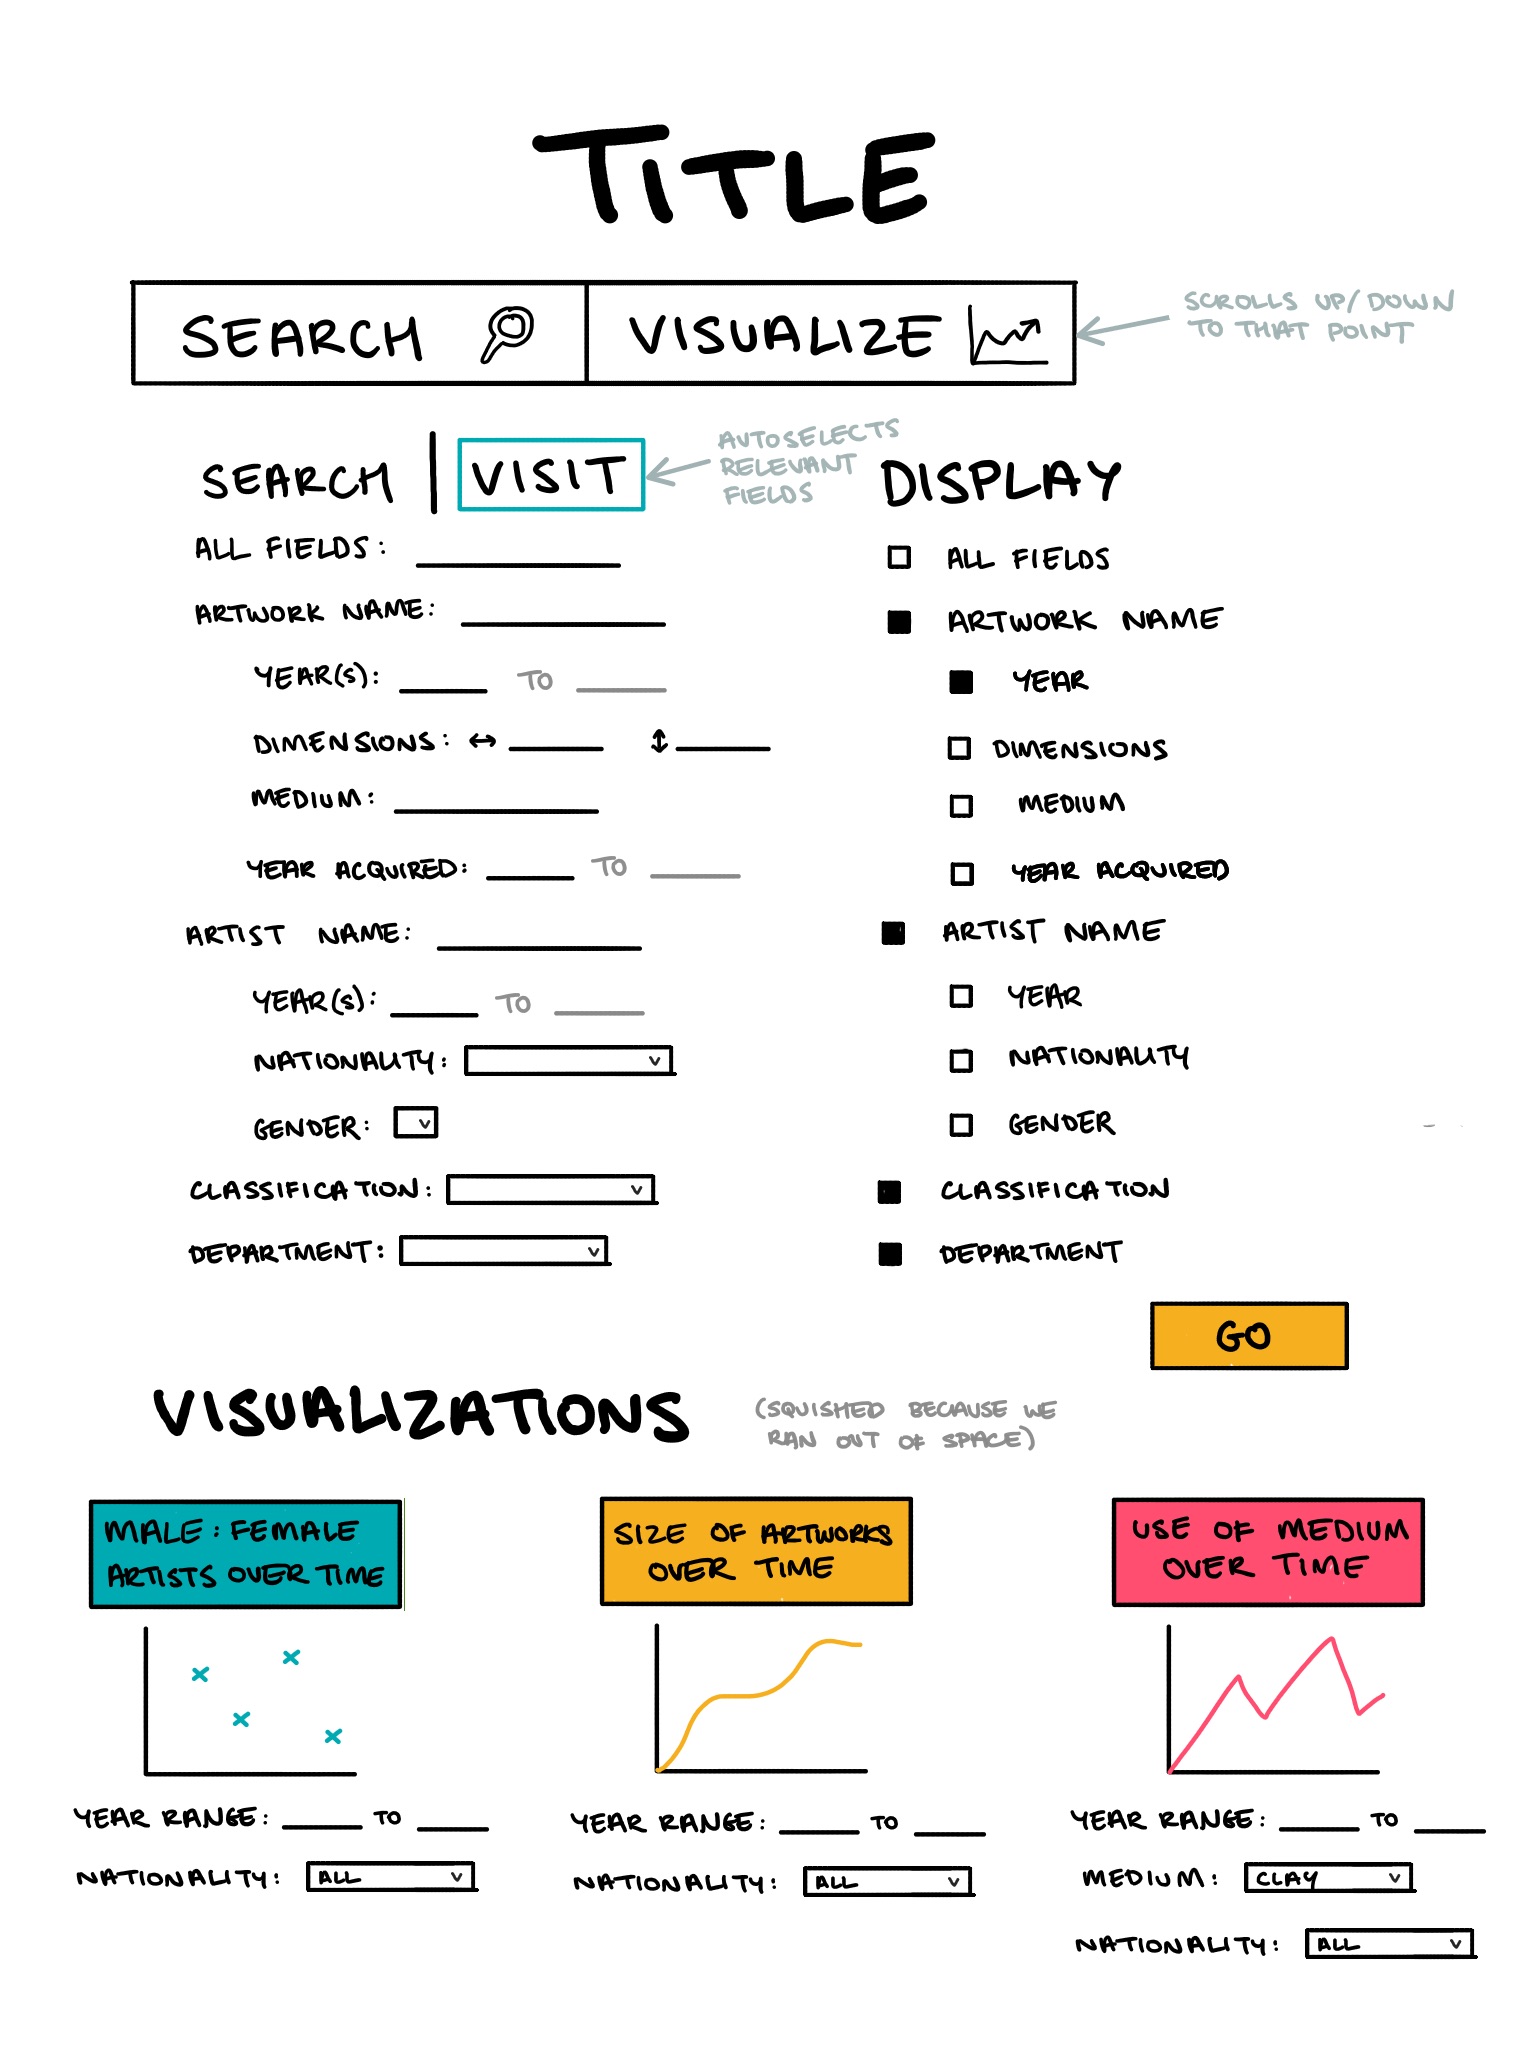 TITLE
SEARCH
VISUALIZE
SCROLLS UP/DOWN
TO THAT POINT
SEARCH
VISIT
AUTOSELECTS
RELEVANT
FIELDS
ALL FIELDS:
ARTWORK NAME:
YEAR(S): TO
DIMENSIONS: ↔ ↕
MEDIUM:
YEAR ACQUIRED: TO
ARTIST NAME:
YEAR(S): TO
NATIONALITY:
GENDER:
CLASSIFICATION:
DEPARTMENT:
DISPLAY
ALL FIELDS
ARTWORK NAME
YEAR
DIMENSIONS
MEDIUM
YEAR ACQUIRED
ARTIST NAME
YEAR
NATIONALITY
GENDER
CLASSIFICATION
DEPARTMENT
GO
VISUALIZATIONS
(SQUISHED BECAUSE WE
RAN OUT OF SPACE)
MALE: FEMALE
ARTISTS OVER TIME
YEAR RANGE: TO
NATIONALITY: ALL
SIZE OF ARTWORKS
OVER TIME
YEAR RANGE: TO
NATIONALITY: ALL
USE OF MEDIUM
OVER TIME
YEAR RANGE: TO
MEDIUM: CLAY
NATIONALITY: ALL